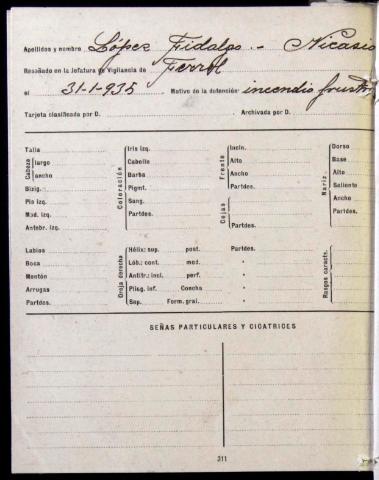 Apellidos y nombre López Fidalgo.- Nicasio
Reseñado en la Jefatura de Vigilancia de Ferrol
el 31-1-935 Motivo de la detención: incendio frustr
Tarjeta clasificada por D. Archivada por D.
Talla Iris izq. Incln. Dorso
Cabeza largo Coloración Cabello Frente Alto Nariz. Base
ancho Barba Ancho Alto
Bizig. Pigmt. Partdes. Saliente
Pie izq. Sang. Cejas Ancho
Med. izq. Partdes. Partdes.
Antebr. izq. Partdes.
Labios Oreja derecha Hélix: sup. post. Partdes. Rasgos caracts.
Boca Lób.: cont. mod. "
Mentón Antitr.: incl. perf. "
Arrugas Plieg. inf. Concha "
Partdes. Sep. Form. gral. "
SEÑAS PARTICULARES Y CICATRICES
311